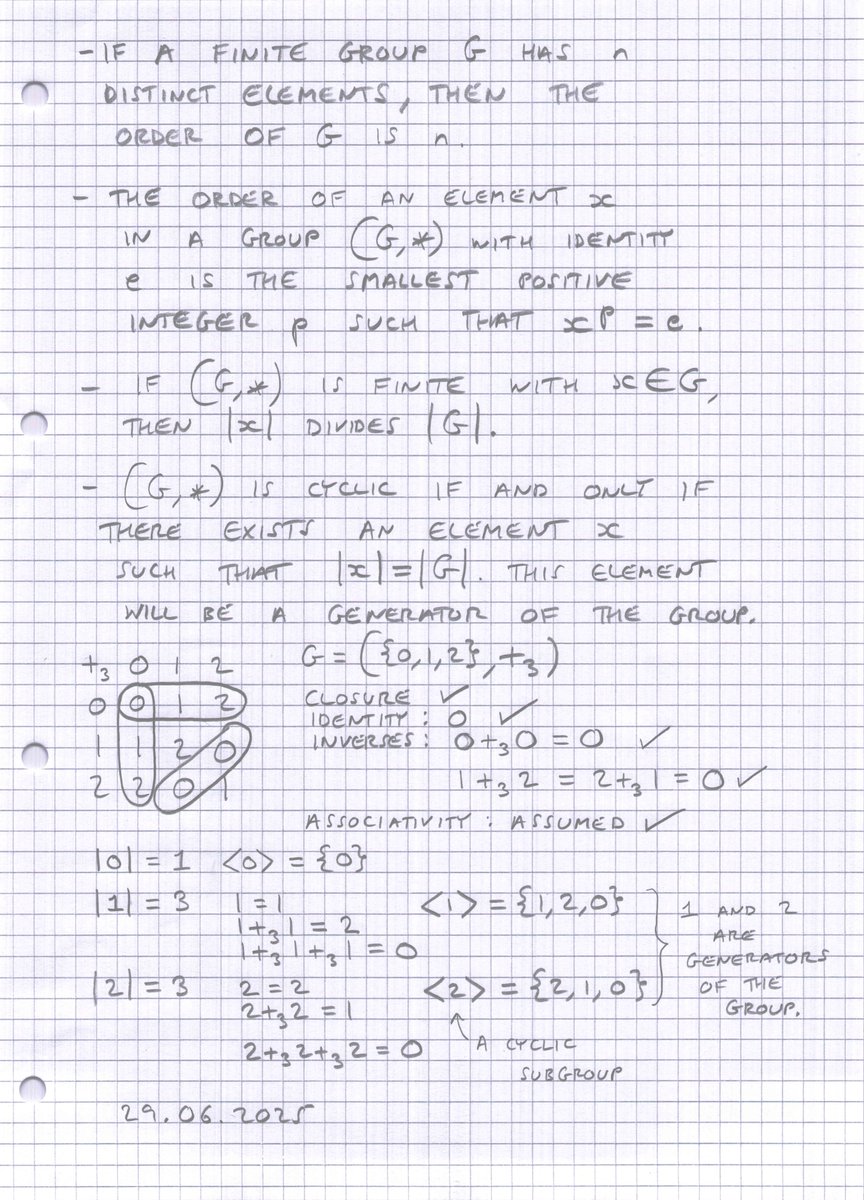 - IF A FINITE GROUP G HAS n
DISTINCT ELEMENTS, THEN THE
ORDER OF G IS n.
- THE ORDER OF AN ELEMENT x
IN A GROUP (G,*) WITH IDENTITY
e IS THE SMALLEST POSITIVE
INTEGER p SUCH THAT x^p = e.
- IF (G,*) IS FINITE WITH x∈G,
THEN |x| DIVIDES |G|.
- (G,*) IS CYCLIC IF AND ONLY IF
THERE EXISTS AN ELEMENT x
SUCH THAT |x|=|G|. THIS ELEMENT
WILL BE A GENERATOR OF THE GROUP.
+₃ 0 1 2
0 0 1 2
1 1 2 0
2 2 0 1
G = ({0,1,2},+₃)
CLOSURE ✓
IDENTITY: 0 ✓
INVERSES: 0+₃0 = 0 ✓
1+₃2 = 2+₃1 = 0 ✓
ASSOCIATIVITY: ASSUMED ✓
|0| = 1 <0> = {0}
|1| = 3 1 = 1 <1> = {1,2,0}
1+₃1 = 2
1+₃1+₃1 = 0
|2| = 3 2 = 2 <2> = {2,1,0}
2+₃2 = 1
2+₃2+₃2 = 0
1 AND 2
ARE
GENERATORS
OF THE
GROUP.
A CYCLIC
SUBGROUP
29.06.2025